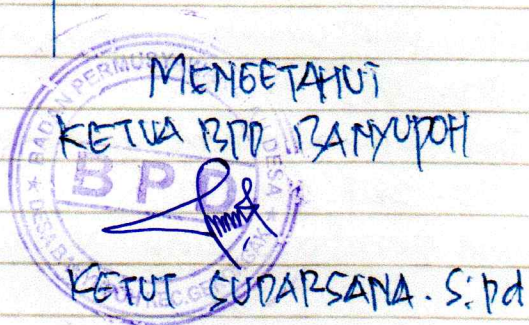 MENGETAHUI
KETUA BPD BANYUPOH
BADAN PERMUSYAWARATAN DESA
BPD
KETUT SUDARSANA. S.pd